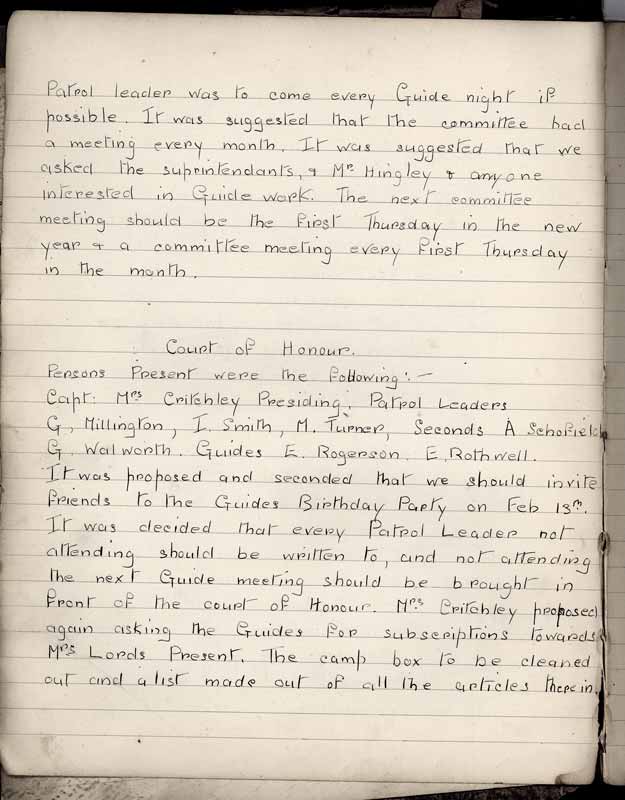 Patrol leader was to come every Guide night if
possible. It was suggested that the committee had
a meeting every month. It was suggested that we
asked the suprintendants, & Mr Hingley & anyone
interested in Guide work. The next committee
meeting should be the first Thursday in the new
year & a committee meeting every first Thursday
in the month.
Court of Honour.
Persons Present were the following:-
Capt: Mrs Critchley Presiding, Patrol Leaders
G, Millington, I. Smith, M. Turner, Seconds A Schofield
G. Walworth. Guides E. Rogerson. E, Rothwell.
It was proposed and seconded that we should invite
friends to the Guides Birthday Party on Feb 13th.
It was decided that every Patrol Leader not
attending should be written to, and not attending
the next Guide meeting should be brought in
front of the court of Honour. Mrs Critchley proposed
again asking the Guides for subscriptions towards
Mrs Lords Present. The camp box to be cleaned
out and a list made out of all the articles therein.